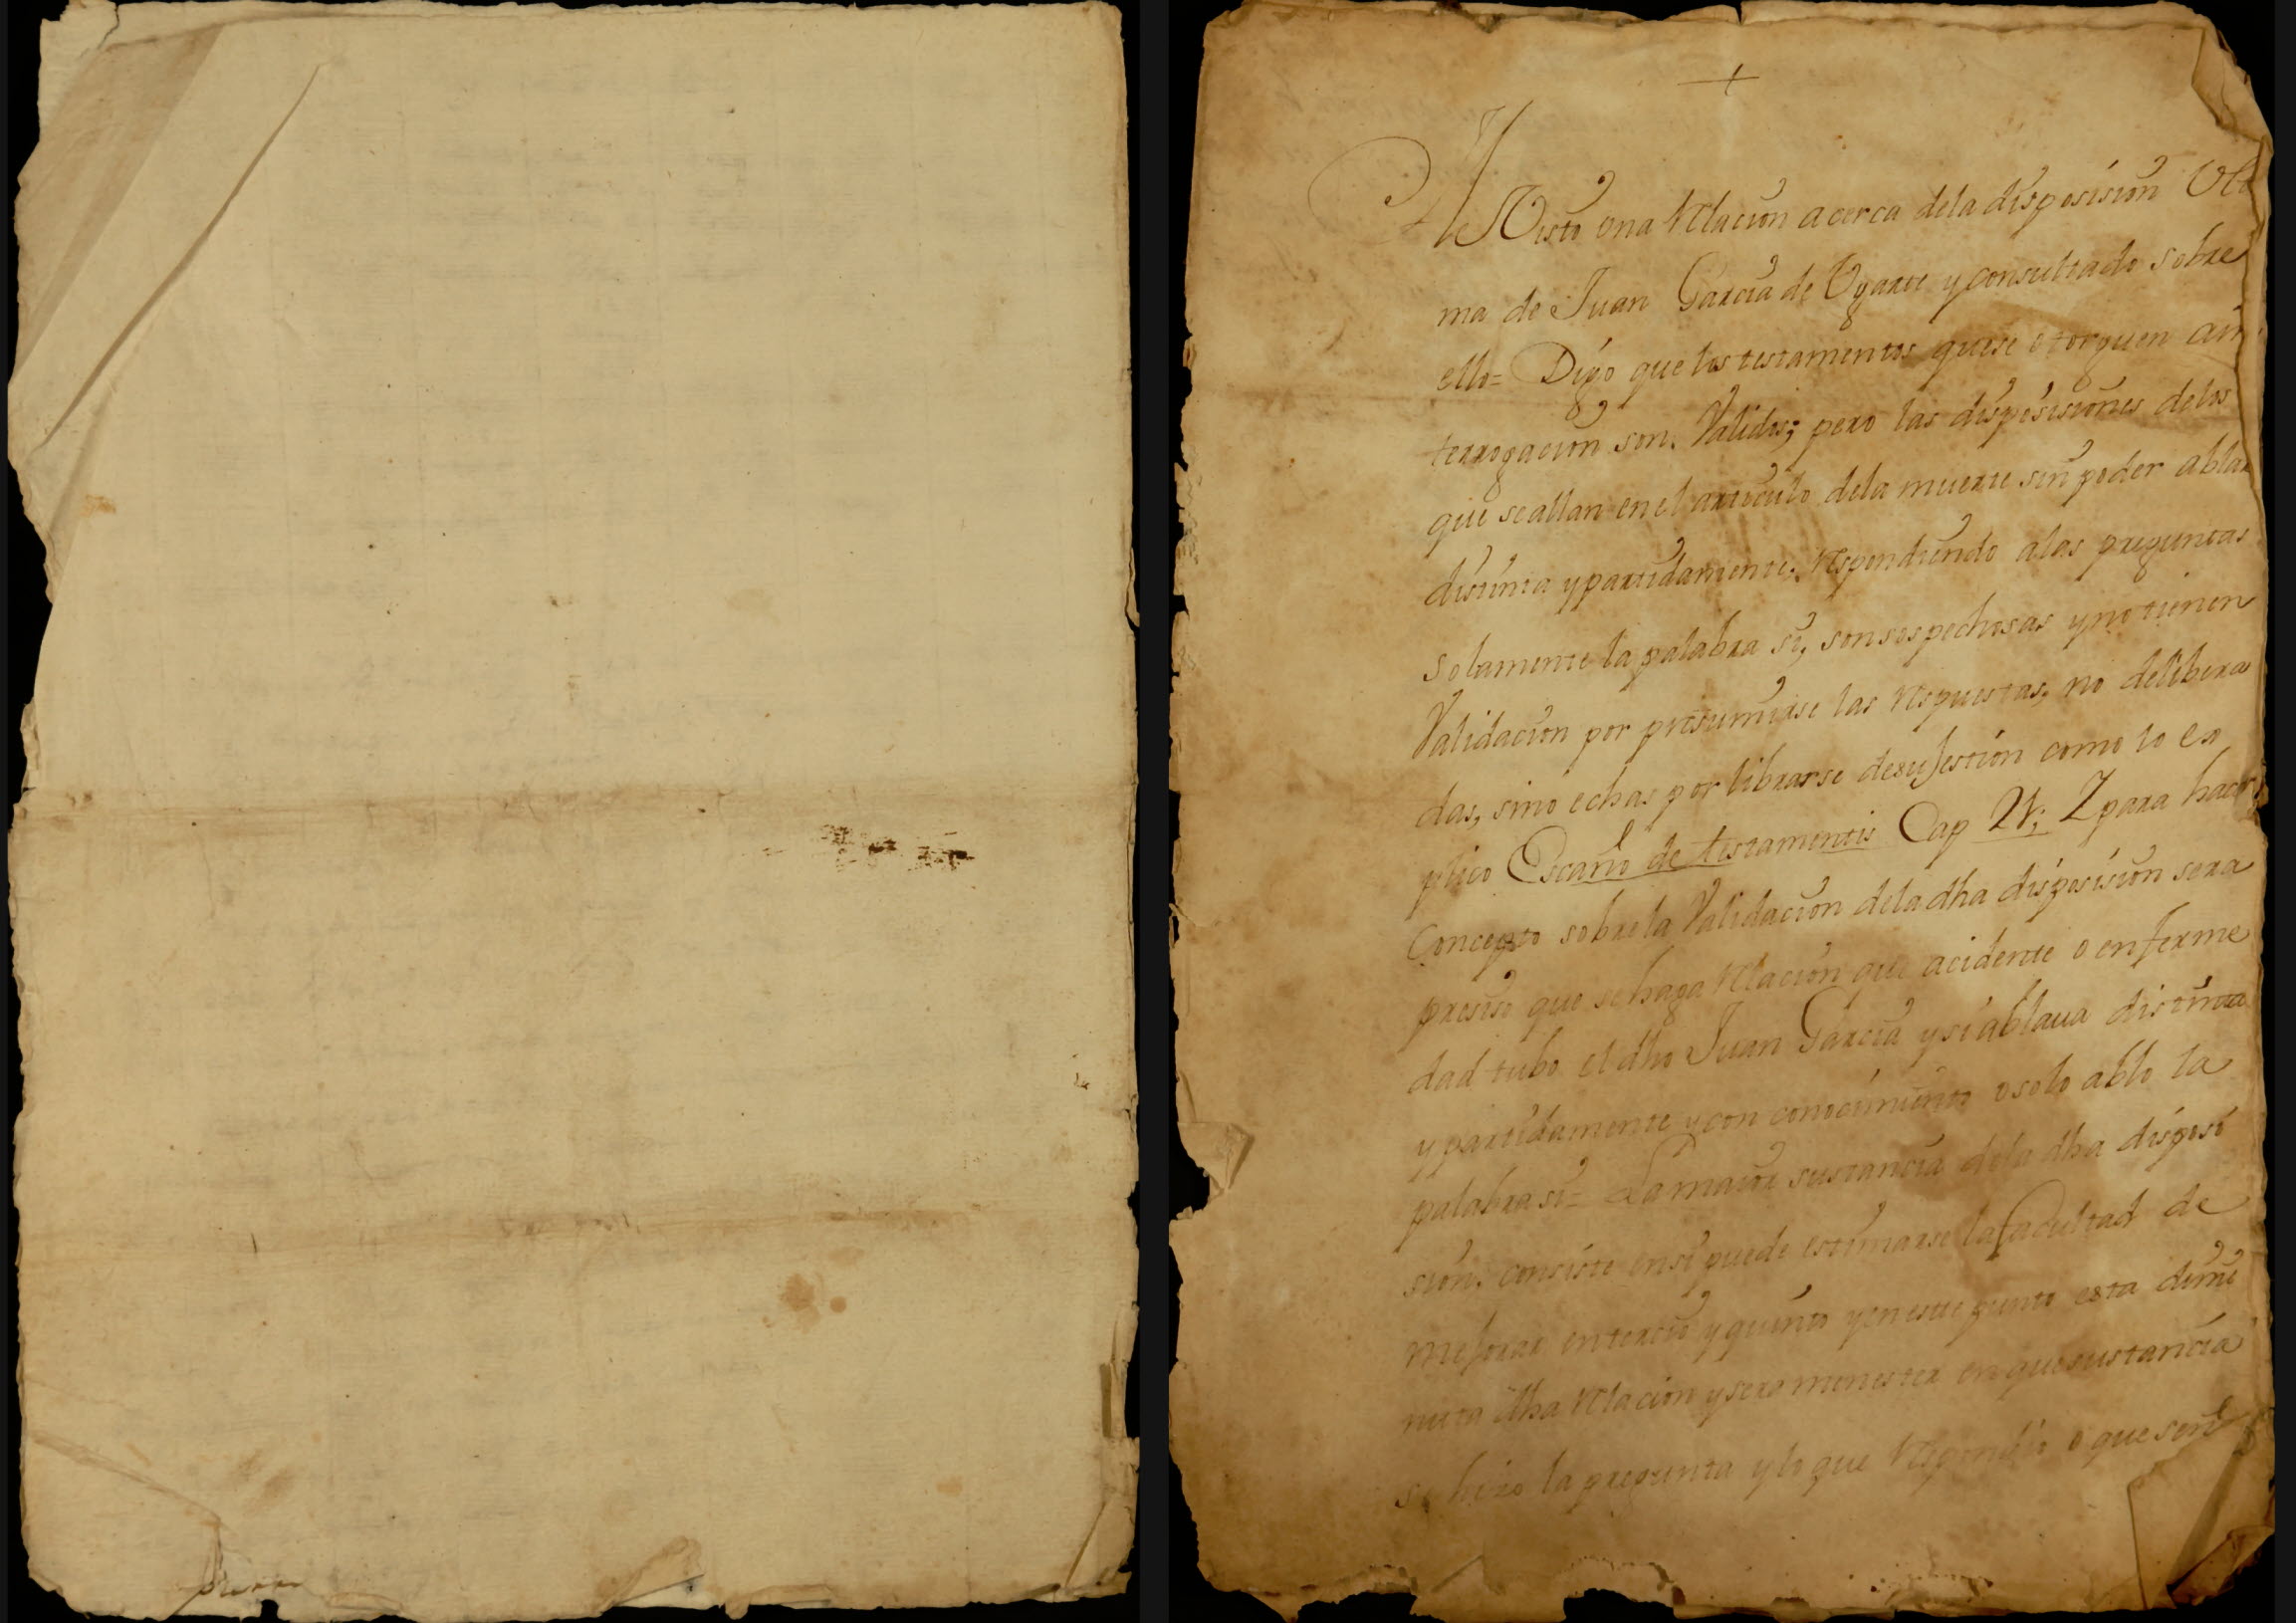 +
He Visto vna relacion acerca dela disposision Vlti
ma de Juan Garcia de Vgarte y consultado sobre
ello= Digo que los testamentos quese otorguen ain
terrogacion son Validos; pero las disposisiones delos
que seallan enel articulo dela muerte sin poder ablar
distinta y partidamente, respondiendo alas preguntas
solamente la palabra si, son sospechosas y no tienen
Validacion por presumirse las respuestas, no delibera
das, sino echas por librarse desujestion como lo ex
plico Escaño de testamentis Cap para hacer
Concepto sobre la Validacion dela dha disposision sera
presiso que se haga relacion que acidente o enferme
dad tubo el dho Juan Garcia y si ablaua distinta
y partidamente y con conocimiento o solo ablo la
palabra si= La maior sustancia dela dha disposi
sion, consiste ensi puede estimarse la facultad de
mejorar en tercio y quinto y en este punto esta dimi
nuta dha relacion y sera menester en que sustancia
se hizo la pregunta y lo que respondio o que